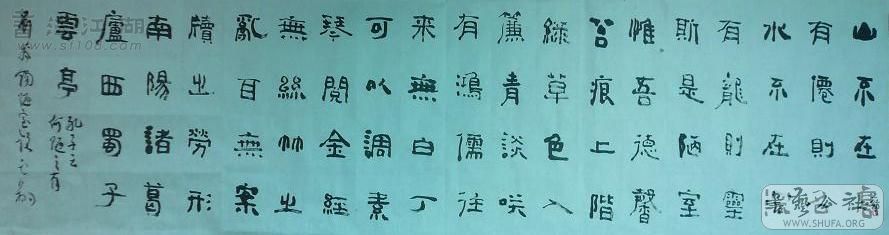 山不在
有僊則
水不在
有龍則靈
斯是陋室
惟吾德馨
苔痕上階
綠草色入
簾青談咲
有鴻儒往
来無白丁
可以調素
琴閱金經
無絲竹之
亂耳無案
牘之勞形
南陽諸葛
廬西蜀子
雲亭
孔子云
何陋之有
SHUFA.ORG